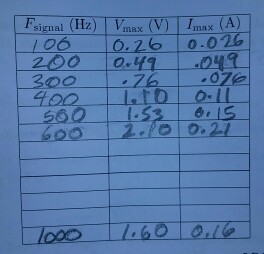 F_signal (Hz) V_max (V) I_max (A)
100 0.26 0.026
200 0.49 .049
300 .76 .076
400 1.10 0.11
500 1.53 0.15
600 2.10 0.21
1000 1.60 0.16